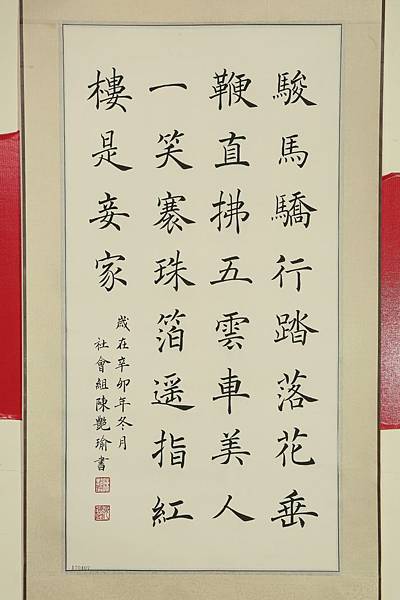 駿馬驕行踏落花垂
鞭直拂五雲車美人
一笑褰珠箔遥指紅
樓是妾家
歲在辛卯年冬月
社會組陳艷瑜書